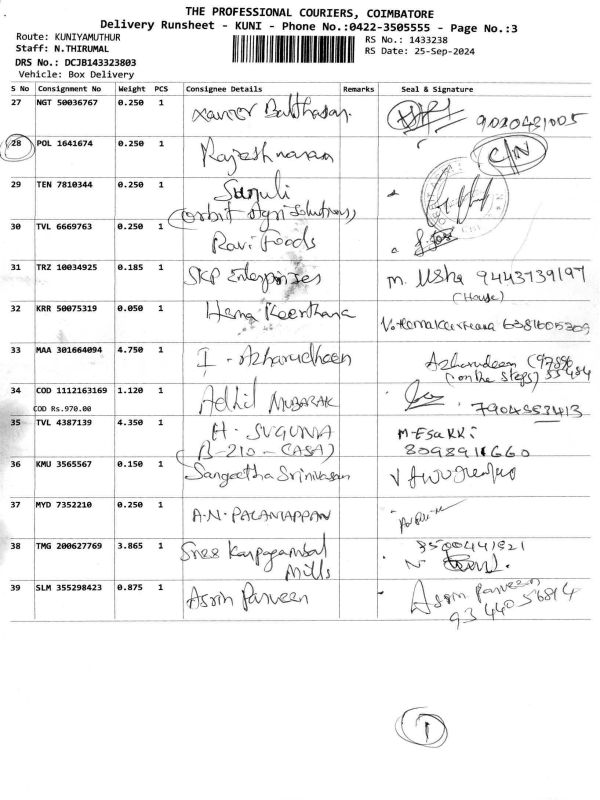 THE PROFESSIONAL COURIERS, COIMBATORE
Delivery Runsheet - KUNI - Phone No.:0422-3505555 - Page No.:3
Route: KUNIYAMUTHUR
RS No.: 1433238
Staff: N.THIRUMAL
RS Date: 25-Sep-2024
DRS No.: DCJB143323803
Vehicle: Box Delivery
S No Consignment No Weight PCS Consignee Details Remarks Seal & Signature
27 NGT 50036767 0.250 1 Xavier Balthasar.
28 POL 1641674 0.250 1 Rajesh naran C/N
29 TEN 7810344 0.250 1
(Orbit Agri Solutions)
30 TVL 6669763 0.250 1 Ravi Foods
31 TRZ 10034925 0.185 1 SKP Enterprises M. Usha 9443739197
(House)
32 KRR 50075319 0.050 1 Hema Keerthana 6381605309
33 MAA 301664094 4.750 1 I - Azharudheen Azharudeen (97896
(on the steps) 55484
34 COD 1112163169 1.120 1 Adhil MUBARAK
COD Rs.970.00 7904553413
35 TVL 4387139 4.350 1 H. SUGUNA M-ESAKKi
B-210 - CASA) 8098911660
36 KMU 3565567 0.150 1 Sangeetha Srinivasan
37 MYD 7352210 0.250 1 A.N. PALANIAPPAN
38 TMG 200627769 3.865 1 Sree Karpagambal 8500441821
Mills
39 SLM 355298423 0.875 1 Asrin Parveen Asrin Parveen
9344056814
1